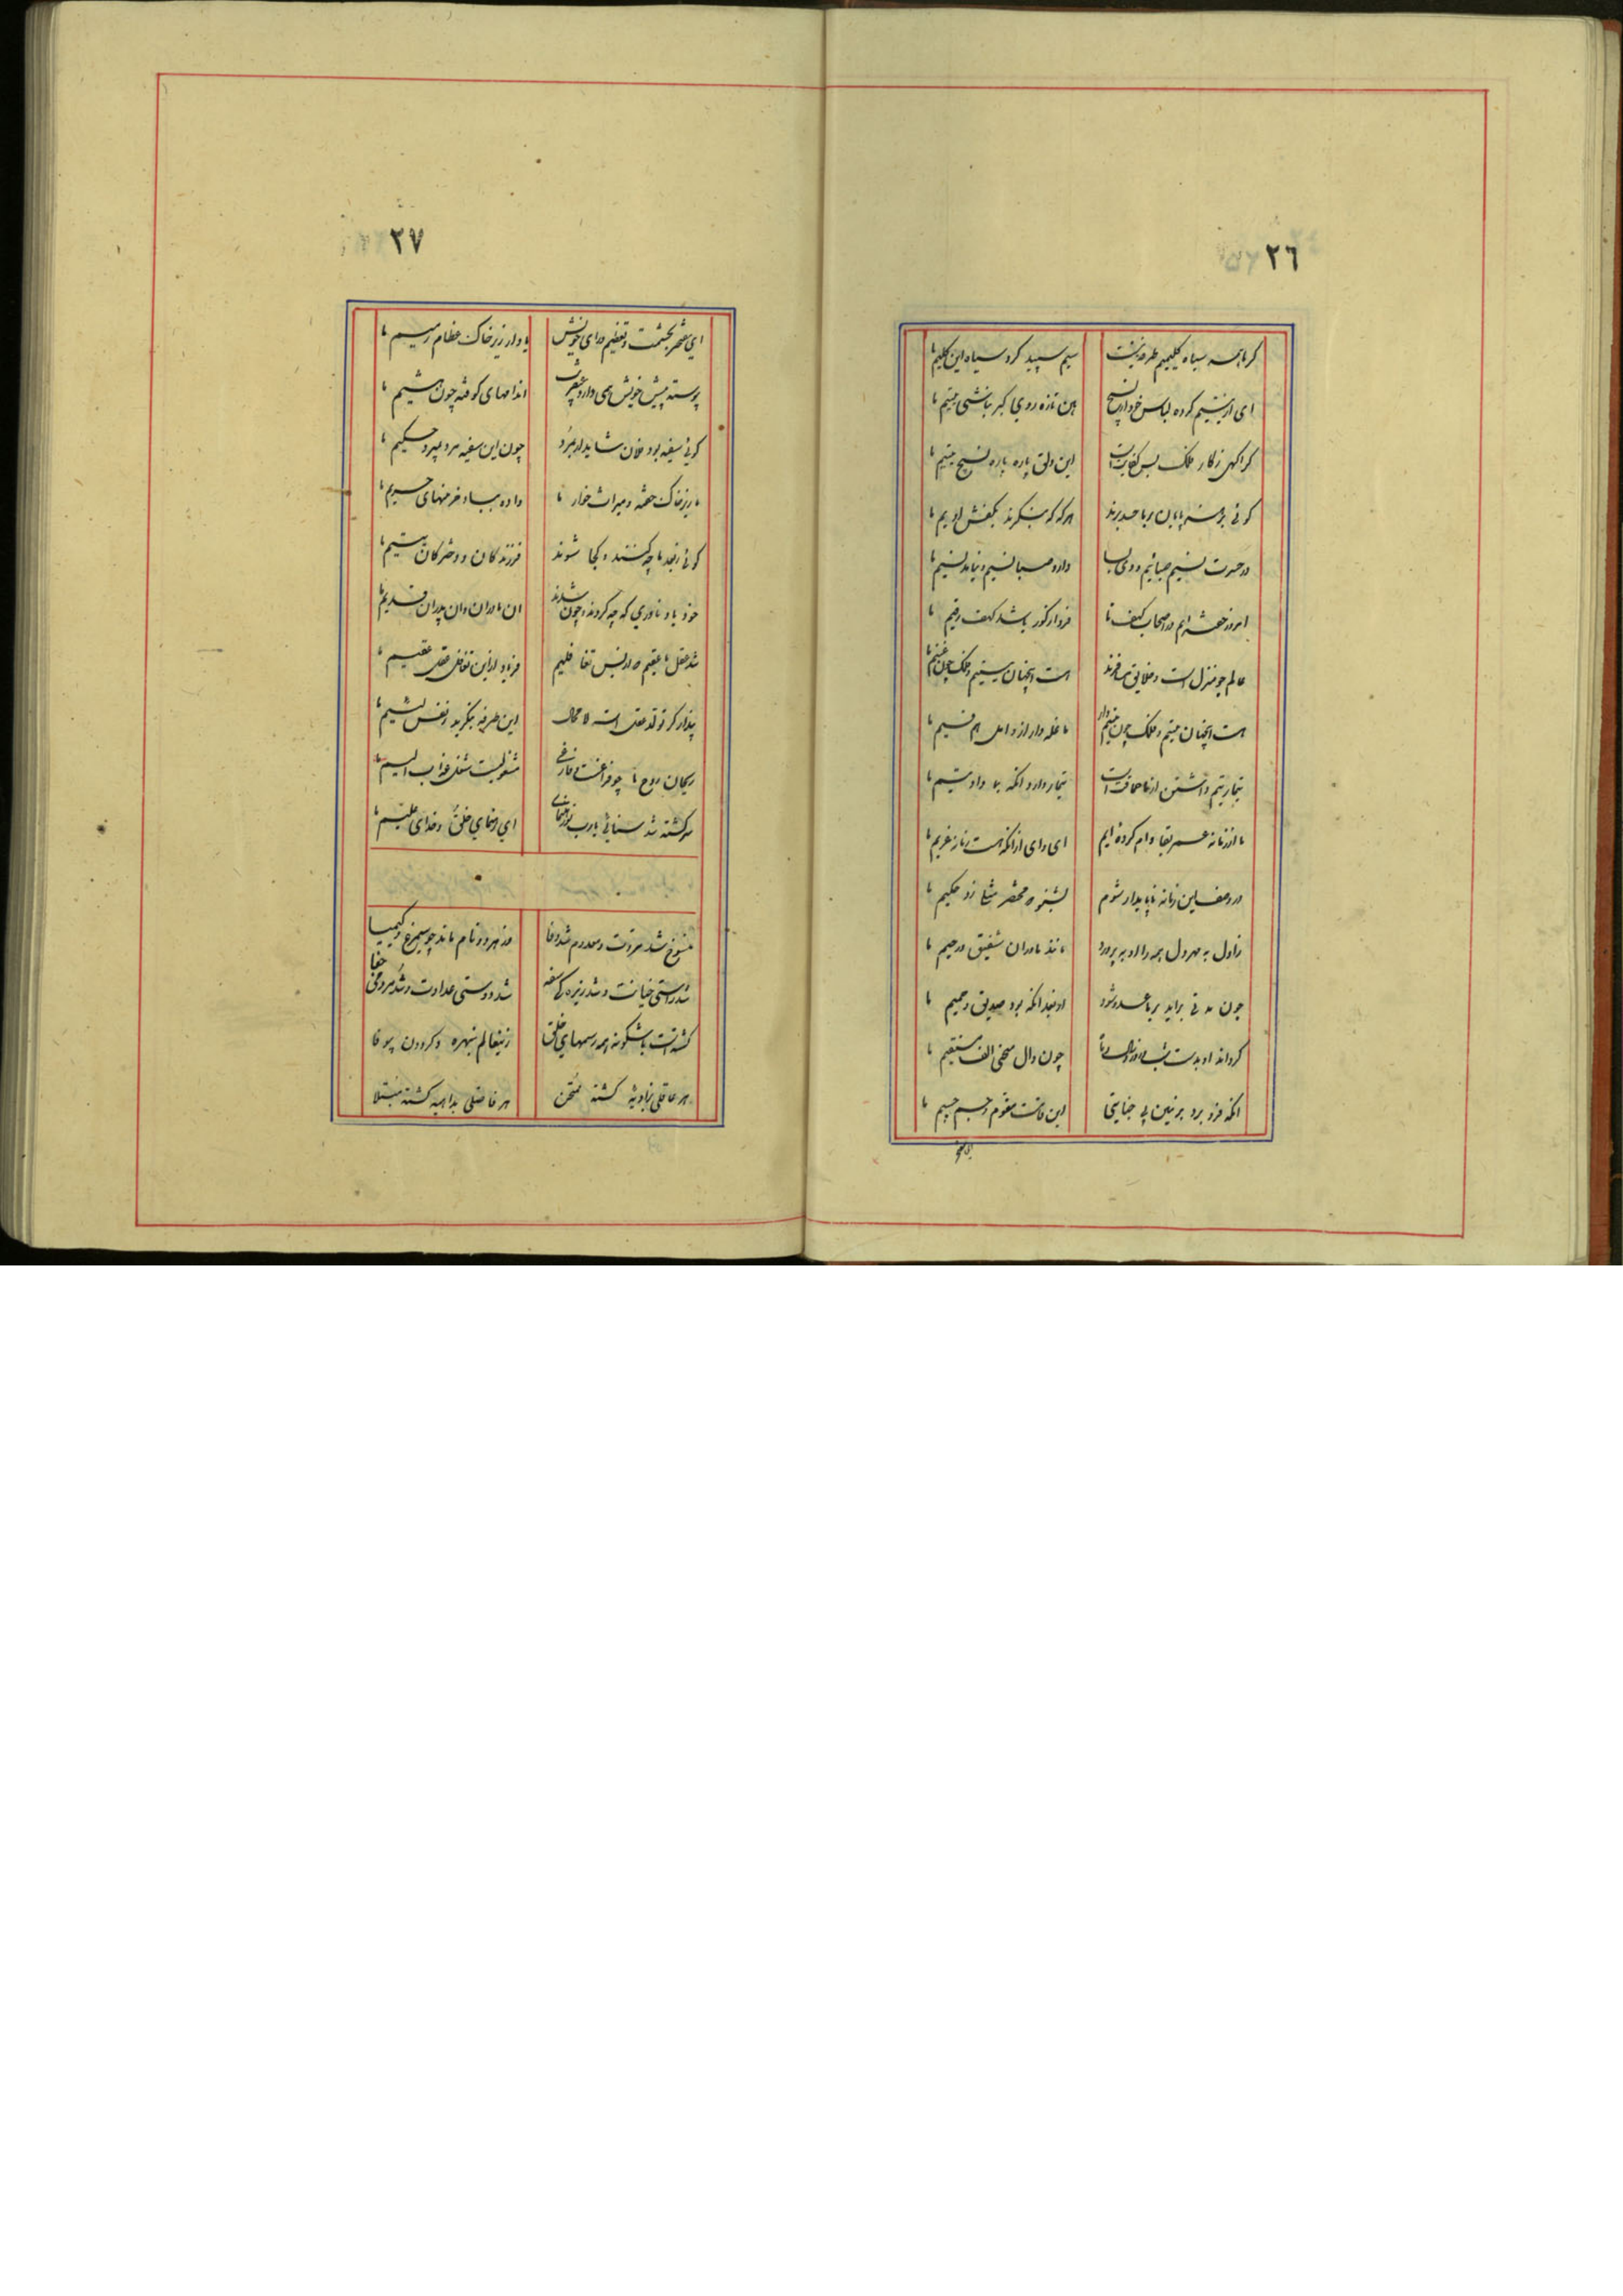 ٢٦
گر ما همه سیاه گلیمیم طرفه نیست
سیم سپید کرد سیاه این گلیم ما
ای از نسیم کرده لباس خود از نسیج
هین تازه روی گیر باشی مقیم ما
گر آگهی ز کار فلک بس کفایت است
این دلق پاره پاره نسیج
گوئی برهنه پایان بر ما حسد برند
هر گه که بنگرند بکفش ادیم ما
در حسرت نسیم صبائیم و وی بسا
دارد صبا نسیم و نیابد نسیم ما
امروز خفته ایم در اصحاب کهف ما
فردا ز گور باشد کهف رقیم ما
عالم چو منزل است و خلایق مسافرند
هست آنچنان و فلک چون غنیم ما
هست آنچنان مقیم و فلک چون
ما غله دار از و امل هم قسیم ما
تیمار یتیم داشتن از ما حماقت است
تیمار دارد آنکه بما داد تیم ما
ما از زمانه عمر بقا وام کرده ایم
ای وای از آنکه هست زمانه غریم ما
در وصف این زمانه ناپایدار شوم
بشنو که مختصر مثلی زد حکیم ما
ز اول به مهر دل همه را او بپرورد
مانند مادران شفیق و رحیم ما
چون مدتی برآید بر ما عدو شود
از بعد آنکه بود صدیق و حمیم ما
گرداند او بدست شب و روز و ماه و سال
چون دال منحنی الف مستقیم ما
آنکه فرو برد بزمین بی جنایتی
این قامت مقوم و جسم جسیم ما
٢٧
ای مفتخر بحشمت و تعظیم و رای خویش
یاد آر زیر خاک عظام رمیم ما
پوسته پیش خویش همی دار
اندامهای کوفته چون هشیم ما
گویی سفیه بود فلان شاید ار بمرد
چون این سفیه مرد بمیرد حکیم ما
ما زیر خاک خفته و میراث خوار ما
داده بباد خرمنهای حریم ما
گوئی بعد ما چه کنند و کجا شوند
فرزندگان و دخترگان یتیم ما
خود یاد ناوری که چه کردند و چون شدند
آن مادران و آن پدران قدیم ما
شد عقل ما عقیم ز بس تغافلیم
فریاد ازین تغافل عقل عقیم ما
پندار کز تولد عقل است لا محال
این طرفه بنگرید ز نفس لئیم ما
ریحان روح ما چو فراغست و فارغی
مشغولیست شغل عذاب الیم ما
سرگشته شد سنائی یارب تو ره نمای
ای رهنمای خلق و خدای علیم ما
منسوخ شد مروت و معدوم شد وفا
وز هر دو نام ماند چو سیمرغ و کیمیا
شد راستی خیانت و شد زیرکی سفه
شد دوستی عداوت و شد مردمی جفا
گشته است باشگونه همه رسمهای خلق
زین عالم نبهره و گردون بیوفا
هر عاقلی بزاویه گشته ممتحن
هر فاضلی بداهیه گشته مبتلا